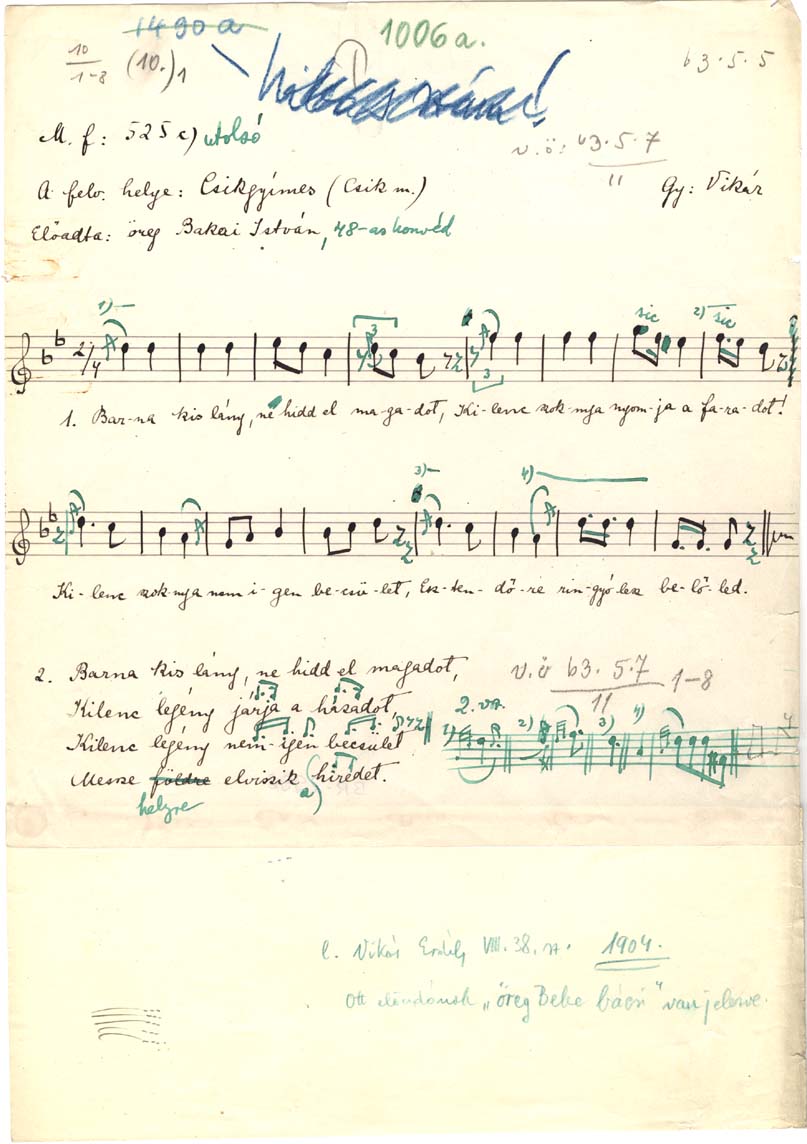 1490a
1006a.
10
1-8
(10.)1
63.5.5
M. f: 525c) utolsó
v.ö: 63.5.7
11
A felv. helye: Csikgyímes (Csik m.)
Gy: Vikár
Előadta: öreg Bakai István, 48-as honvéd
1)
3
sic
2) sic
2/4
3
1. Bar-na kis lány, ne hidd el ma-ga-dot, Ki-lenc szok-nya nyom-ja a fa-ra-dot!
3)
4)
Ki-lenc szok-nya nem i-gen be-csü-let, Esz-ten-dő-re rin-gyó lesz be-lő-led.
2. Barna kis lány, ne hidd el magadot,
v.ö 63.5.7
11
1-8
Kilenc legény járja a házadot,
2. vsz.
Kilenc legény nem igen becsület
1) 2) 3) 4)
Messze földre elviszik hiredet.
helyre
a)
l. Vikár Erdély VIII. 38. sz. 1904.
Ott előadónak „öreg Beke bácsi" van jelezve.